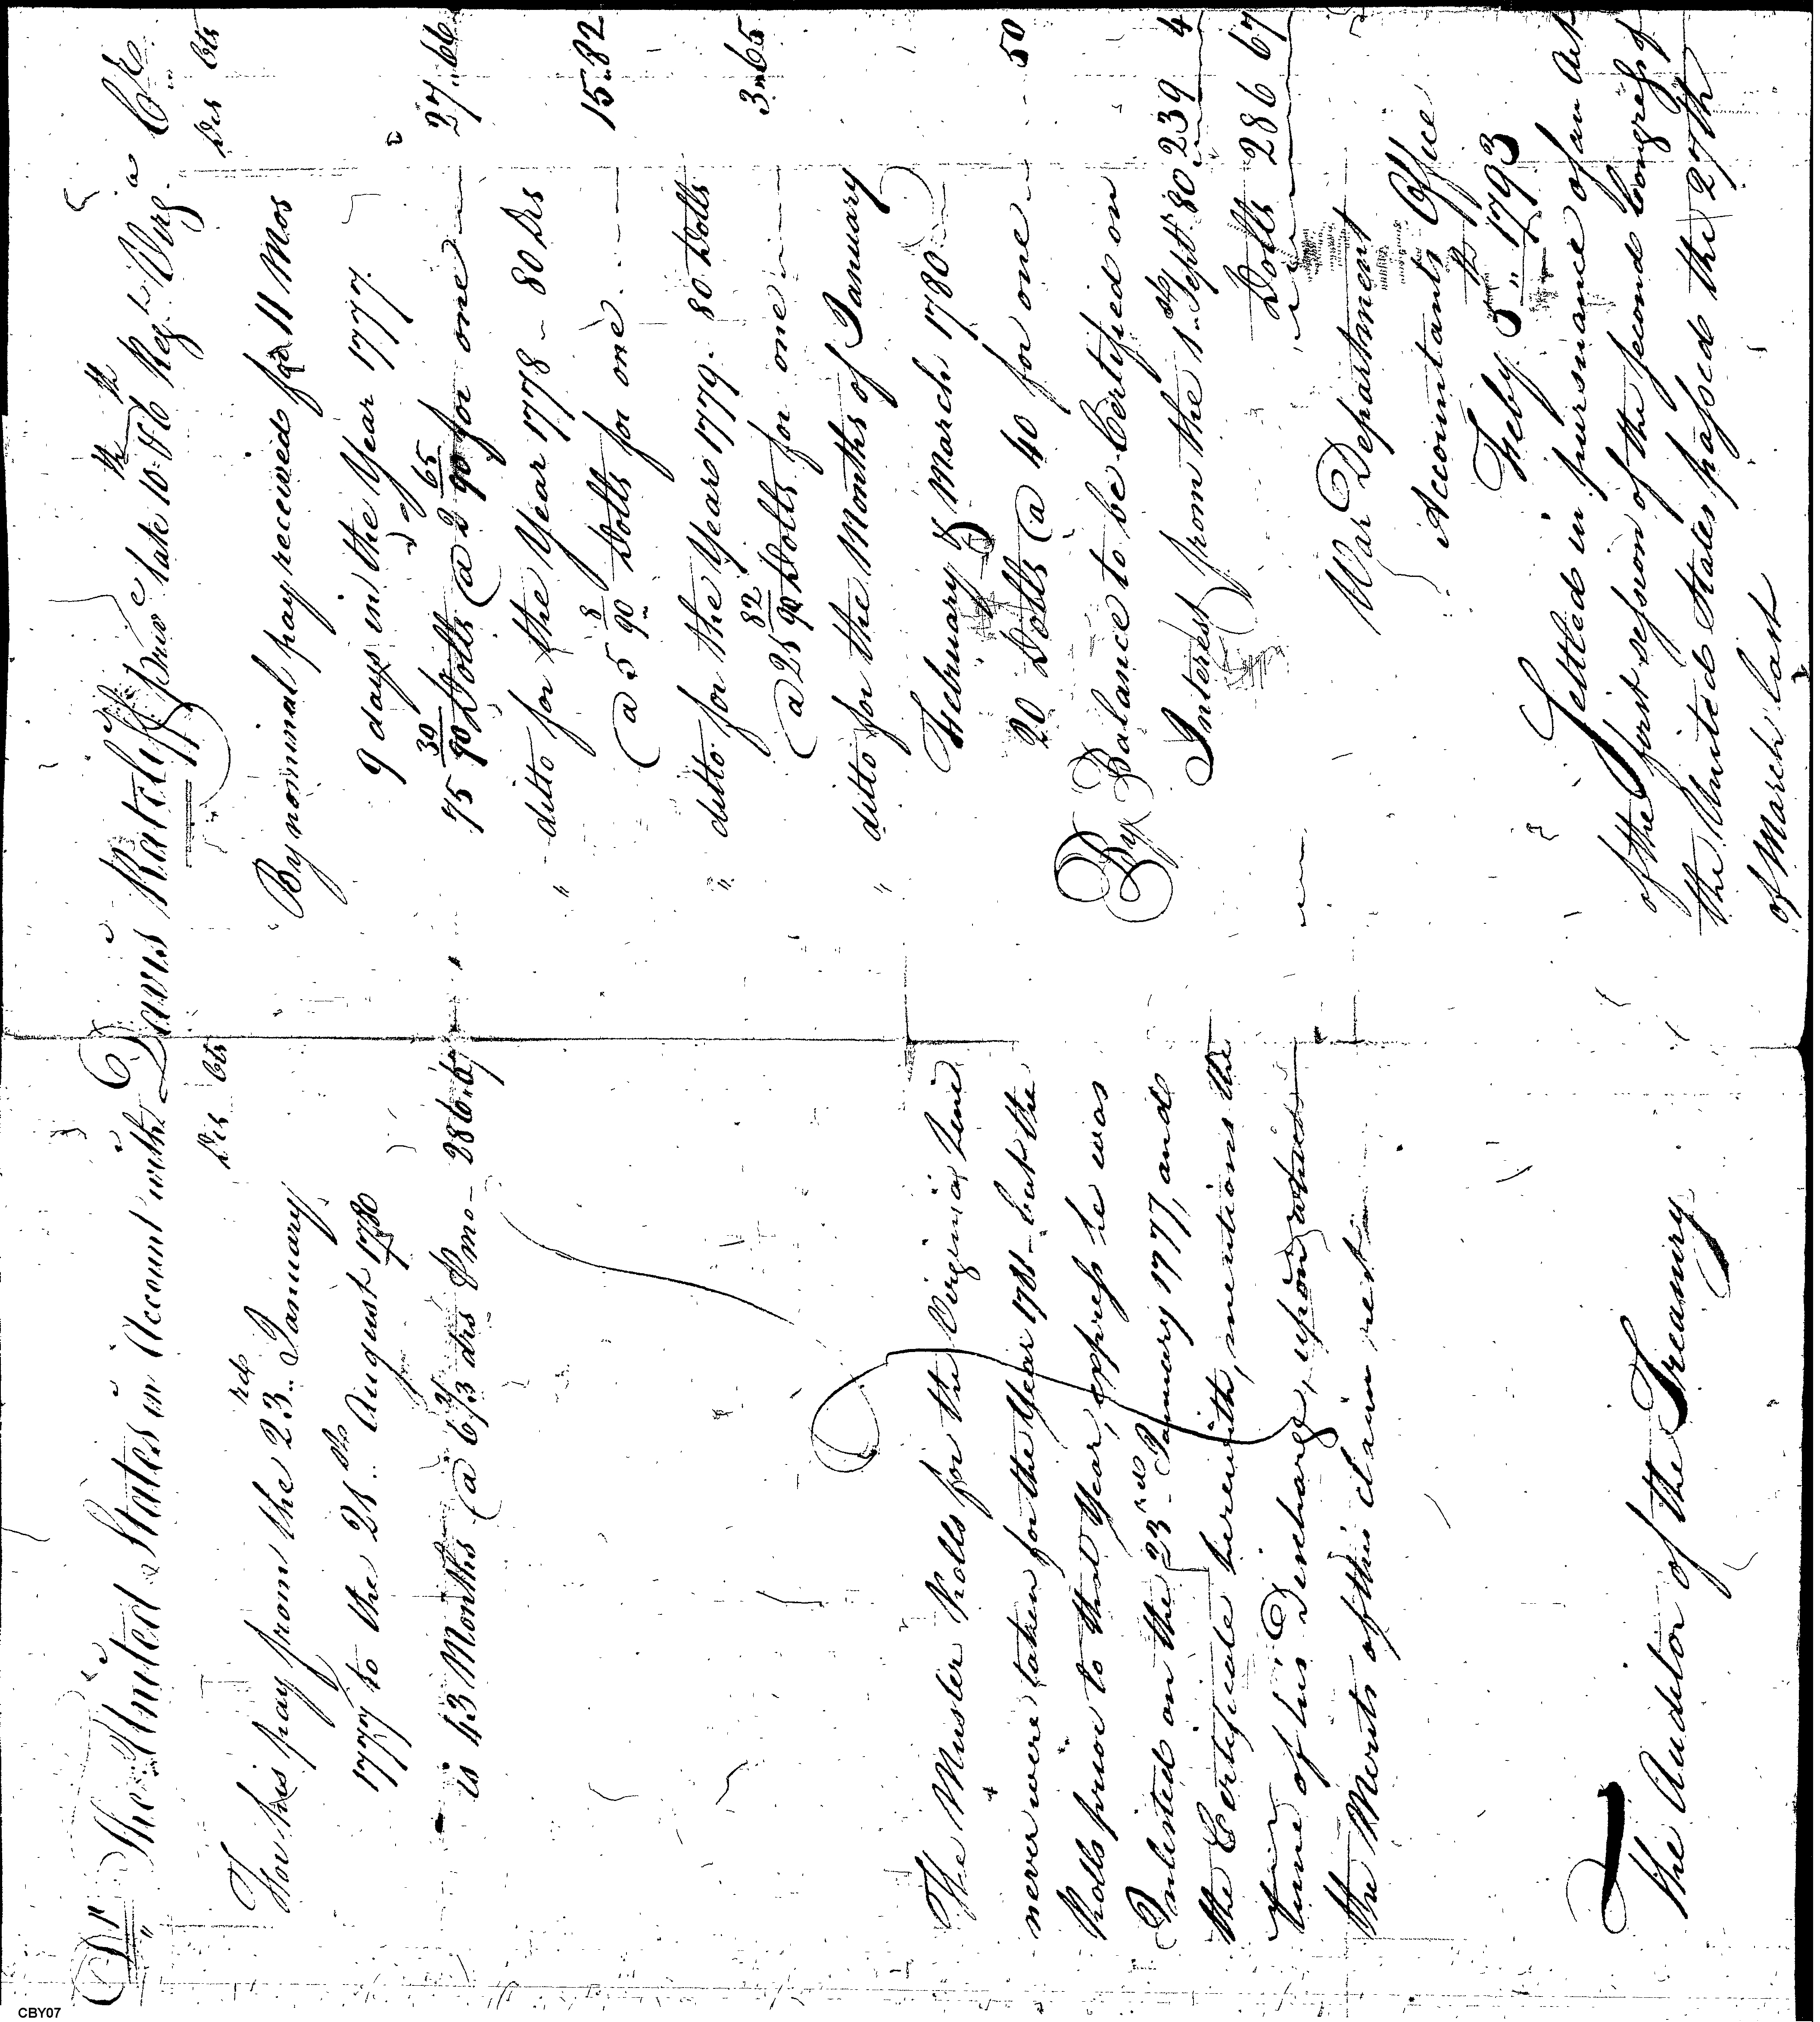 Dr The United States in Account with Davis Ratcliff priv late 10th & 6th Regt Virg. a Cr
Drs Cts
For his pay from the 23rd January
1777 to the 25th August 1780
is 43 Months @ 6 2/3 drs P mo - 286.67
The Muster Rolls for the Virginia Line
never were taken for the Year 1781 - but the
Rolls prior to that Year, express he was
Inlisted on the 23rd January 1777, and
the Certificate herewith, mentions the
time of his Discharge, upon which
the Merits of this claim rest
The Auditor of the Treasury
Drs Cts
By nominal pay received for 11 Mos
9 days in the Year 1777.
75 30/90 Dolls @ 2 65/90 for one 27.66
" ditto for the Year 1778 - 80 Drs
@ 5 8/90 Dolls for one 15.82
" ditto for the Year 1779. 80 Dolls
@ 25 82/90 Dolls for one 3.65
" ditto for the Months of January
February & March 1780
20 Dolls @ 40 for one 50
By Balance to be Certified on
Interest from the 1st Sept 80 239 4
Dolls 286 67
War Department
Accountants Office
Feby 5th 1793
Settled in pursuance of an Act
of the first session of the second Congress of
the United States passed the 27th
of March last
CBY07